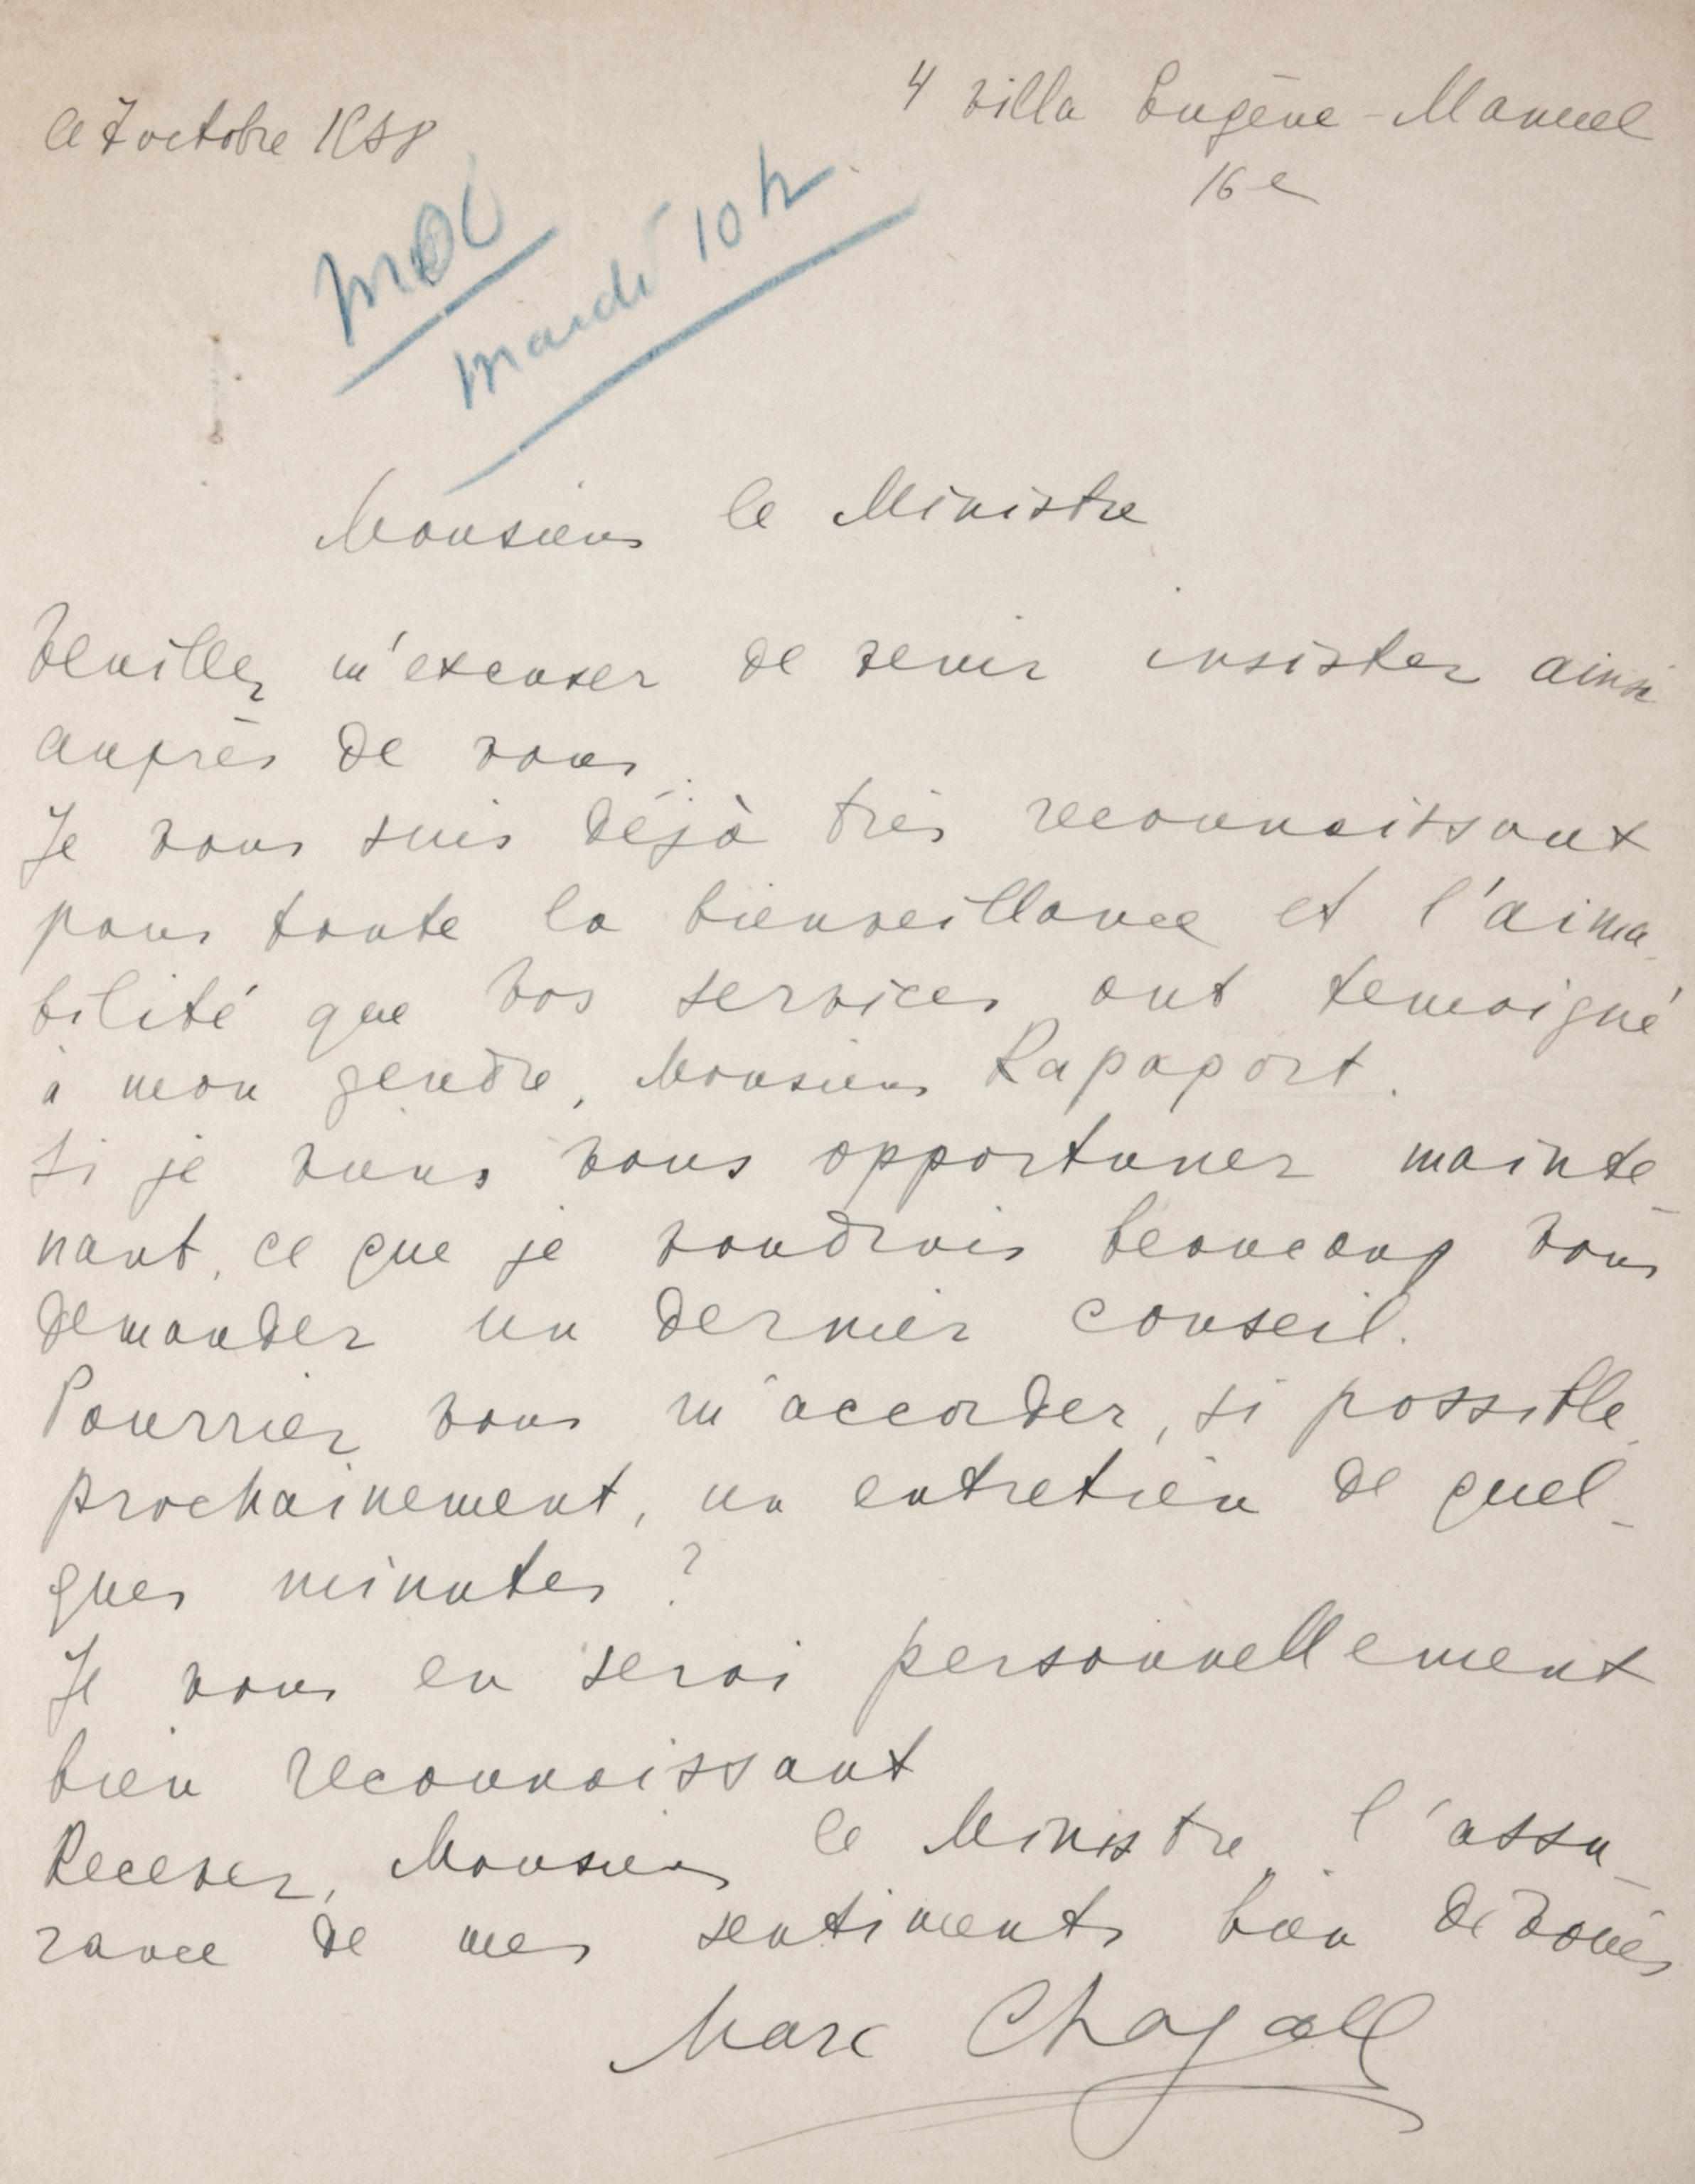 le 7 octobre 1938
4 villa Eugène-Manuel
16e
mardi 10 h
Monsieur le Ministre
Veuillez m'excuser de venir insister ainsi
auprès de vous.
Je vous suis déjà très reconnaissant
pour toute la bienveillance et l'aima-
bilité que vos services ont temoigné
à mon gendre, Monsieur Rapaport.
Si je viens vous opportuner mainte-
nant, ce que je voudrais beaucoup vous
demander un dernier conseil.
Pourriez vous m'accorder, si possible
prochainement, un entretien de quel-
ques minutes ?
Je vous en serai personnellement
bien reconnaissant
Recevez, Monsieur le Ministre, l'assu-
rance de mes sentiments bien dévoués
Marc Chagall